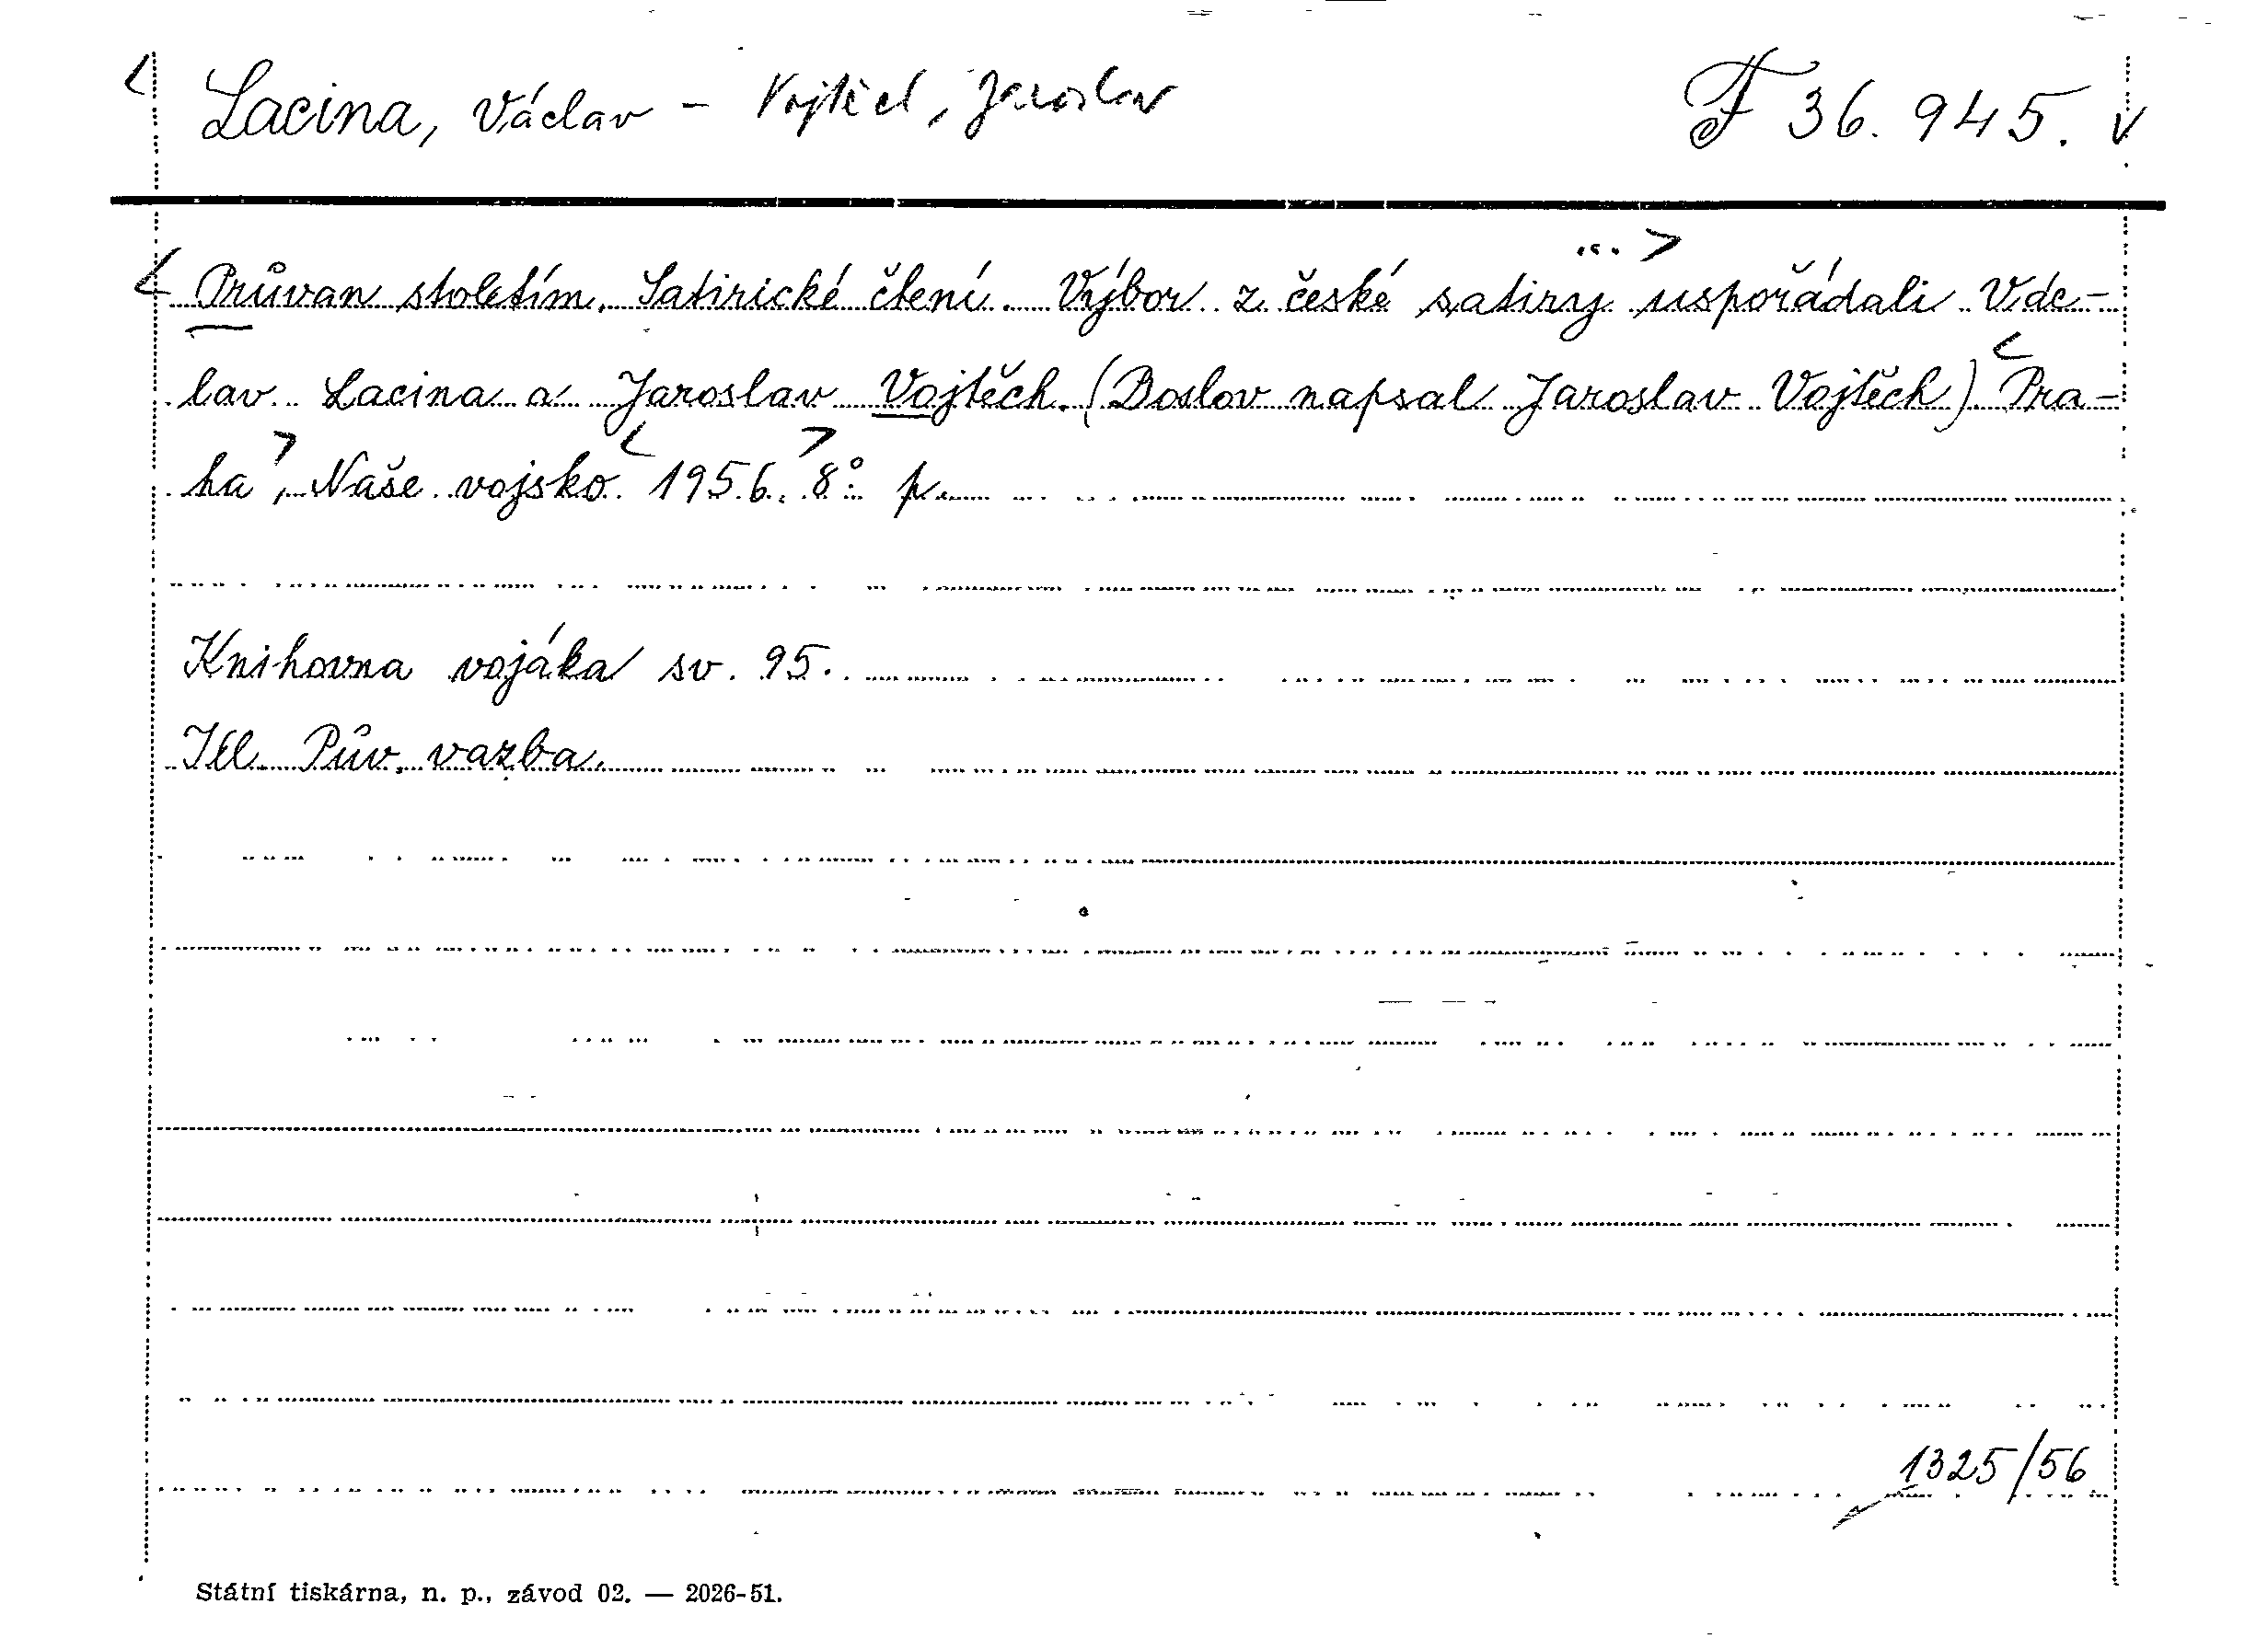 Lacina, Václav - Vojtěch, Jaroslav F 36.945.
Průvan stoletím. Satirické čtení. Výbor z české satiry uspořádali Vác-
lav Lacina a Jaroslav Vojtěch. (Doslov napsal Jaroslav Vojtěch) Pra-
ha, Naše vojsko 1956. 8° p.
Knihovna vojáka sv. 95.
Ill. Pův. vazba.
1325/56
Státní tiskárna, n. p., závod 02. — 2026-51.